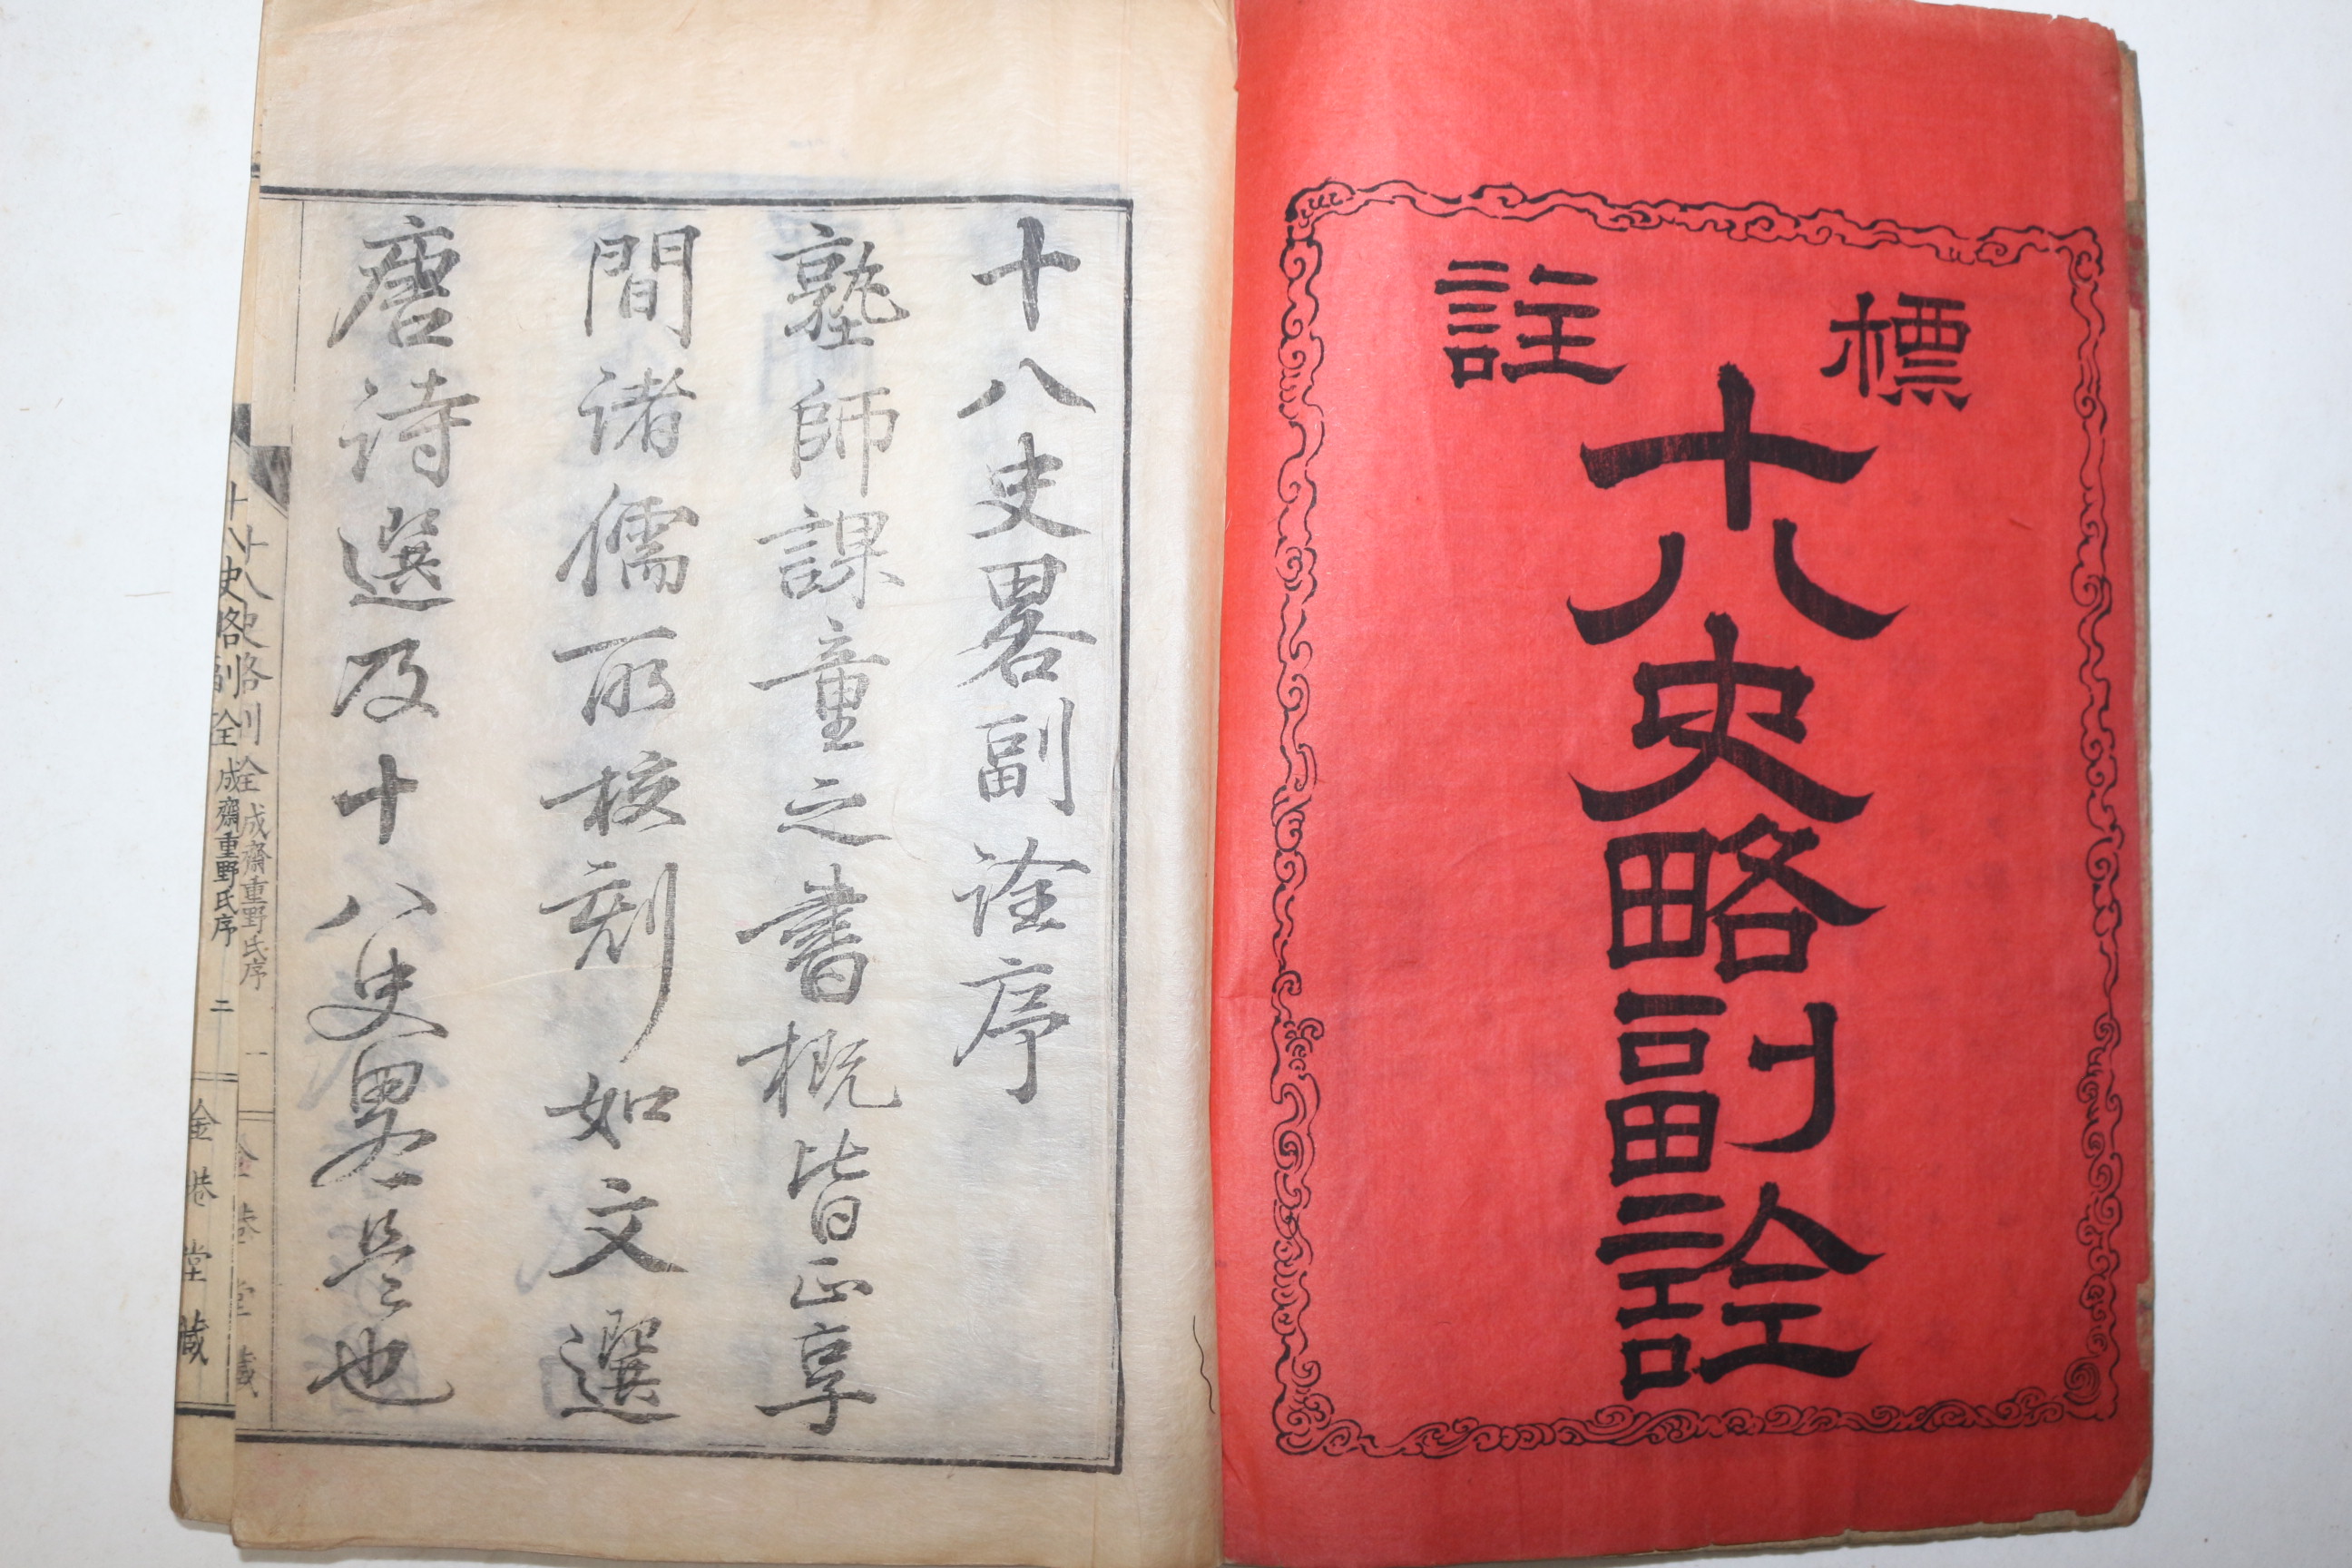 標註
十八史略副詮
十八史畧副詮序
塾師課童之書概皆正享
間諸儒所校刻如文選
唐詩選及十八史畧是也
十八史略副詮 成齋重野氏序 一 金港堂藏
十八史略副詮 成齋重野氏序 二 金港堂藏